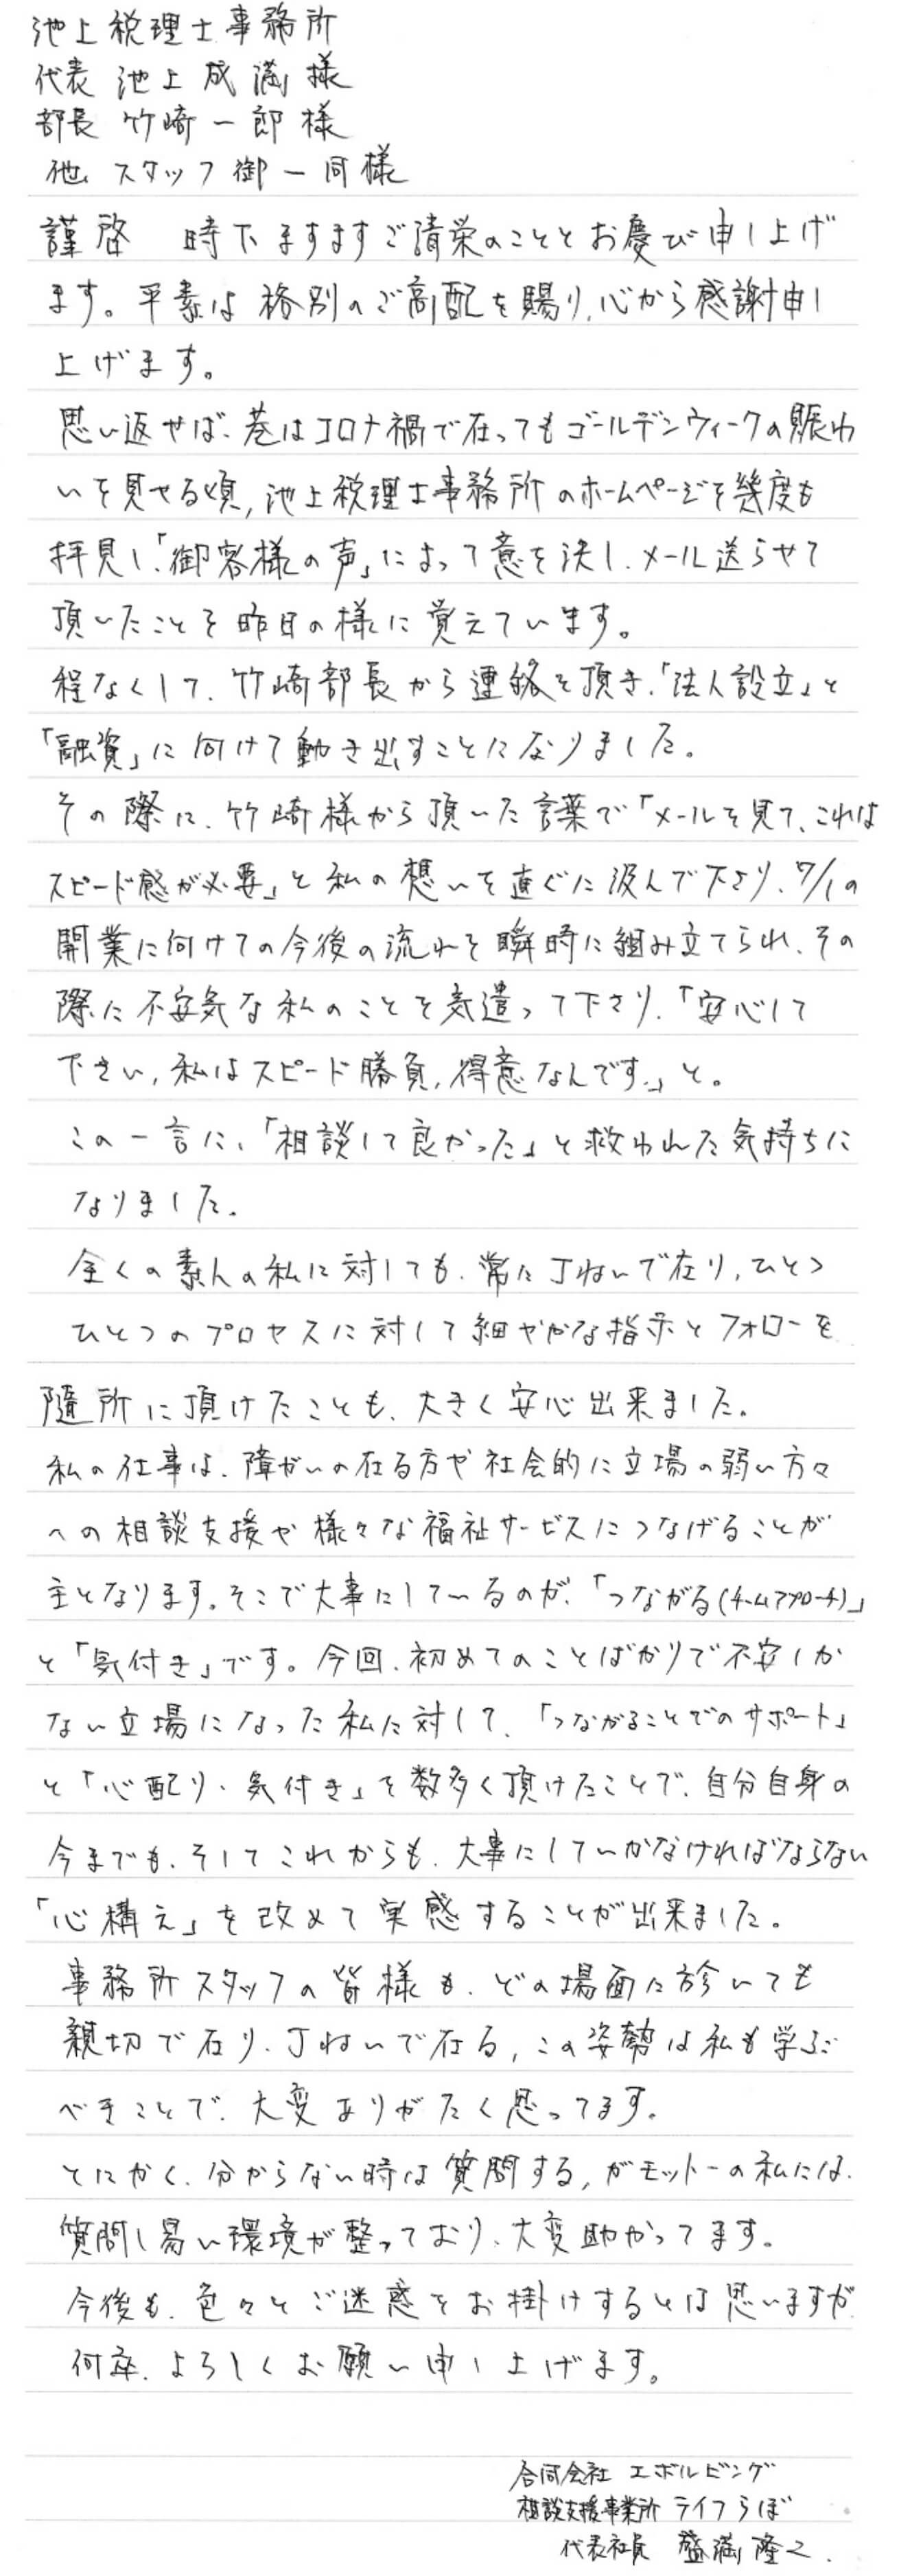 池上税理士事務所
代表 池上成満様
部長 竹崎一郎様
他 スタッフ御一同様
謹啓 時下ますますご清栄のこととお慶び申し上げ
ます。平素は格別のご高配を賜り、心から感謝申し
上げます。
思い返せば、巷はコロナ禍で在ってもゴールデンウィークの賑わ
いを見せる頃、池上税理士事務所のホームページを幾度も
拝見し、「御客様の声」によって意を決し、メール送らせて
頂いたことを昨日の様に覚えています。
程なくして、竹崎部長から連絡を頂き、「法人設立」と
「融資」に向けて動き出すことになりました。
その際に、竹崎様から頂いた言葉で「メールを見て、これは
スピード感が必要」と私の想いを直ぐに汲んで下さり、7/1の
開業に向けての今後の流れを瞬時に組み立てられ、その
際に不安気な私のことを気遣って下さり、「安心して
下さい、私はスピード勝負、得意なんです。」と。
この一言に、「相談して良かった」と救われた気持ちに
なりました。
全くの素人の私に対しても、常に丁ねいで在り、ひとつ
ひとつのプロセスに対して細やかな指示とフォローを
随所に頂けたことも、大きく安心出来ました。
私の仕事は、障がいの在る方や社会的に立場の弱い方々
への相談支援や様々な福祉サービスにつなげることが
主となります。そこで大事にしているのが、「つながる(チームアプローチ)」
と「気付き」です。今回、初めてのことばかりで不安しか
ない立場になった私に対して、「つながることでのサポート」
と「心配り、気付き」を数多く頂けたことで、自分自身の
今までも、そしてこれからも、大事にしていかなければならない
「心構え」を改めて実感することが出来ました。
事務所スタッフの皆様も、どの場面に於いても
親切で在り、丁ねいで在る、この姿勢は私も学ぶ
べきことで、大変ありがたく思ってます。
とにかく、分からない時は質問する、がモットーの私には、
質問し易い環境が整っており、大変助かってます。
今後も、色々とご迷惑をお掛けするとは思いますが、
何卒、よろしくお願い申し上げます。
合同会社 エボルビング
相談支援事業所 ライフらぼ
代表社員 盛満隆之